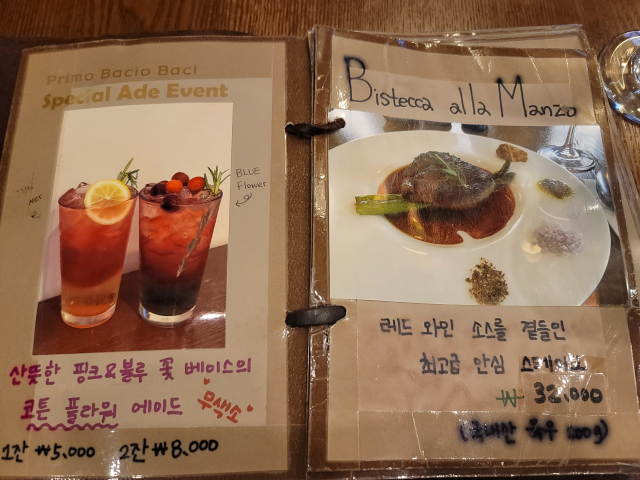 Primo Bacio Baci
Special Ade Event
BLUE
Flower
산뜻한 핑크&블루 꽃 베이스의
코튼 플라워 에이드 무색소
1잔 ₩5,000 2잔 ₩8,000
Bistecca alla Manzo
레드 와인 소스를 곁들인
최고급 안심 스테이크
₩ 32,000
(국내산 육우 200g)